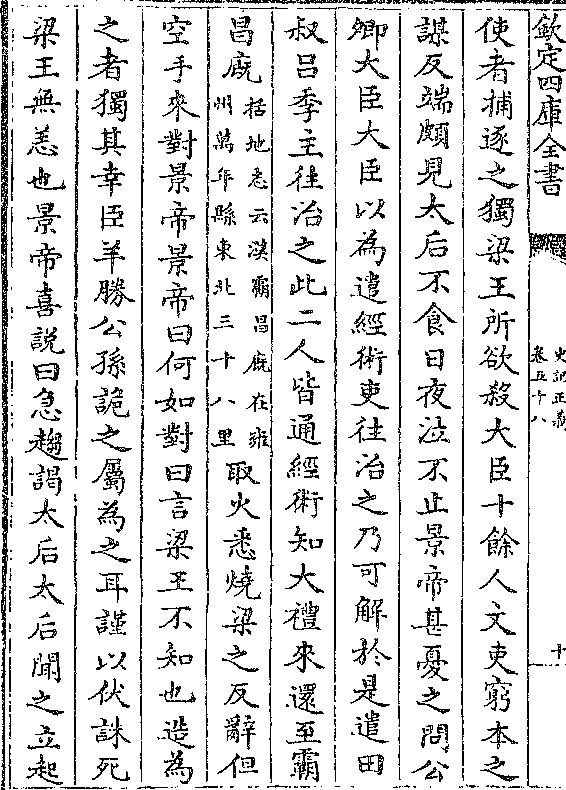 欽定四庫全書
史記正義
卷五十八
十
使者捕逐之獨梁王所欲殺大臣十餘人文吏窮本之
謀反端頗見太后不食日夜泣不止景帝甚憂之問公
卿大臣大臣以為遣經術吏往治之乃可解於是遣田
叔吕季主往治之此二人皆通經術知大禮來還至霸
昌廐括地志云漢霸昌廐在雍州萬年縣東北三十八里取火悉燒梁之反辭但
空手來對景帝景帝曰何如對曰言梁王不知也造為
之者獨其幸臣羊勝公孫詭之屬為之耳謹以伏誅死
梁王無恙也景帝喜說曰急趨謁太后太后聞之立起